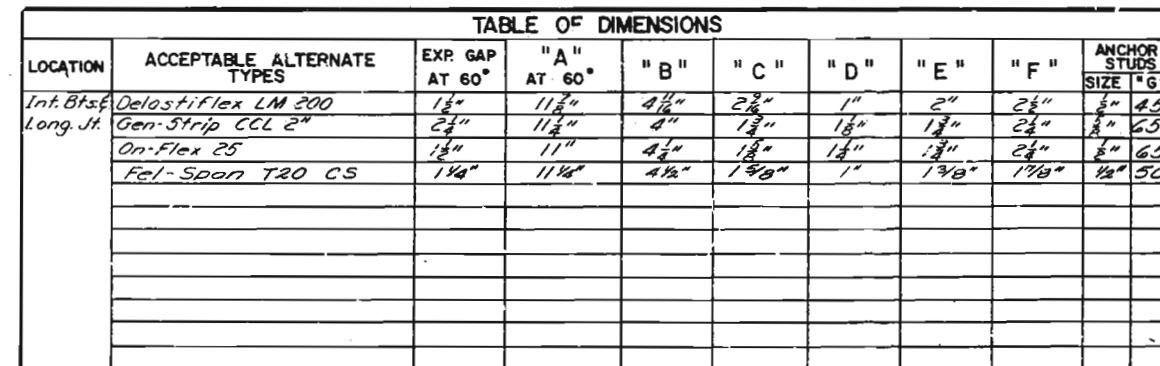 TABLE OF DIMENSIONS
LOCATION ACCEPTABLE ALTERNATE TYPES EXP. GAP AT 60° "A" AT 60° "B" "C" "D" "E" "F" ANCHOR STUDS SIZE "G
Int. Bts & Delastiflex LM 200 1½" 11⅞" 4 11/16" 2 9/16" 1" 2" 2½" ½" 45
Long. Jt. Gen-Strip CCL 2" 2¼" 11½" 4" 1¾" 1⅛" 1¾" 2¼" 65
On-Flex 25 1½" 11" 4¼" 1⅝" 1¼" 1¾" 2¼" ½" 65
Fel-Span T20 CS 1¼" 11¼" 4½" 1 5/8" 1" 1 3/8" 1 7/8" ½" 50